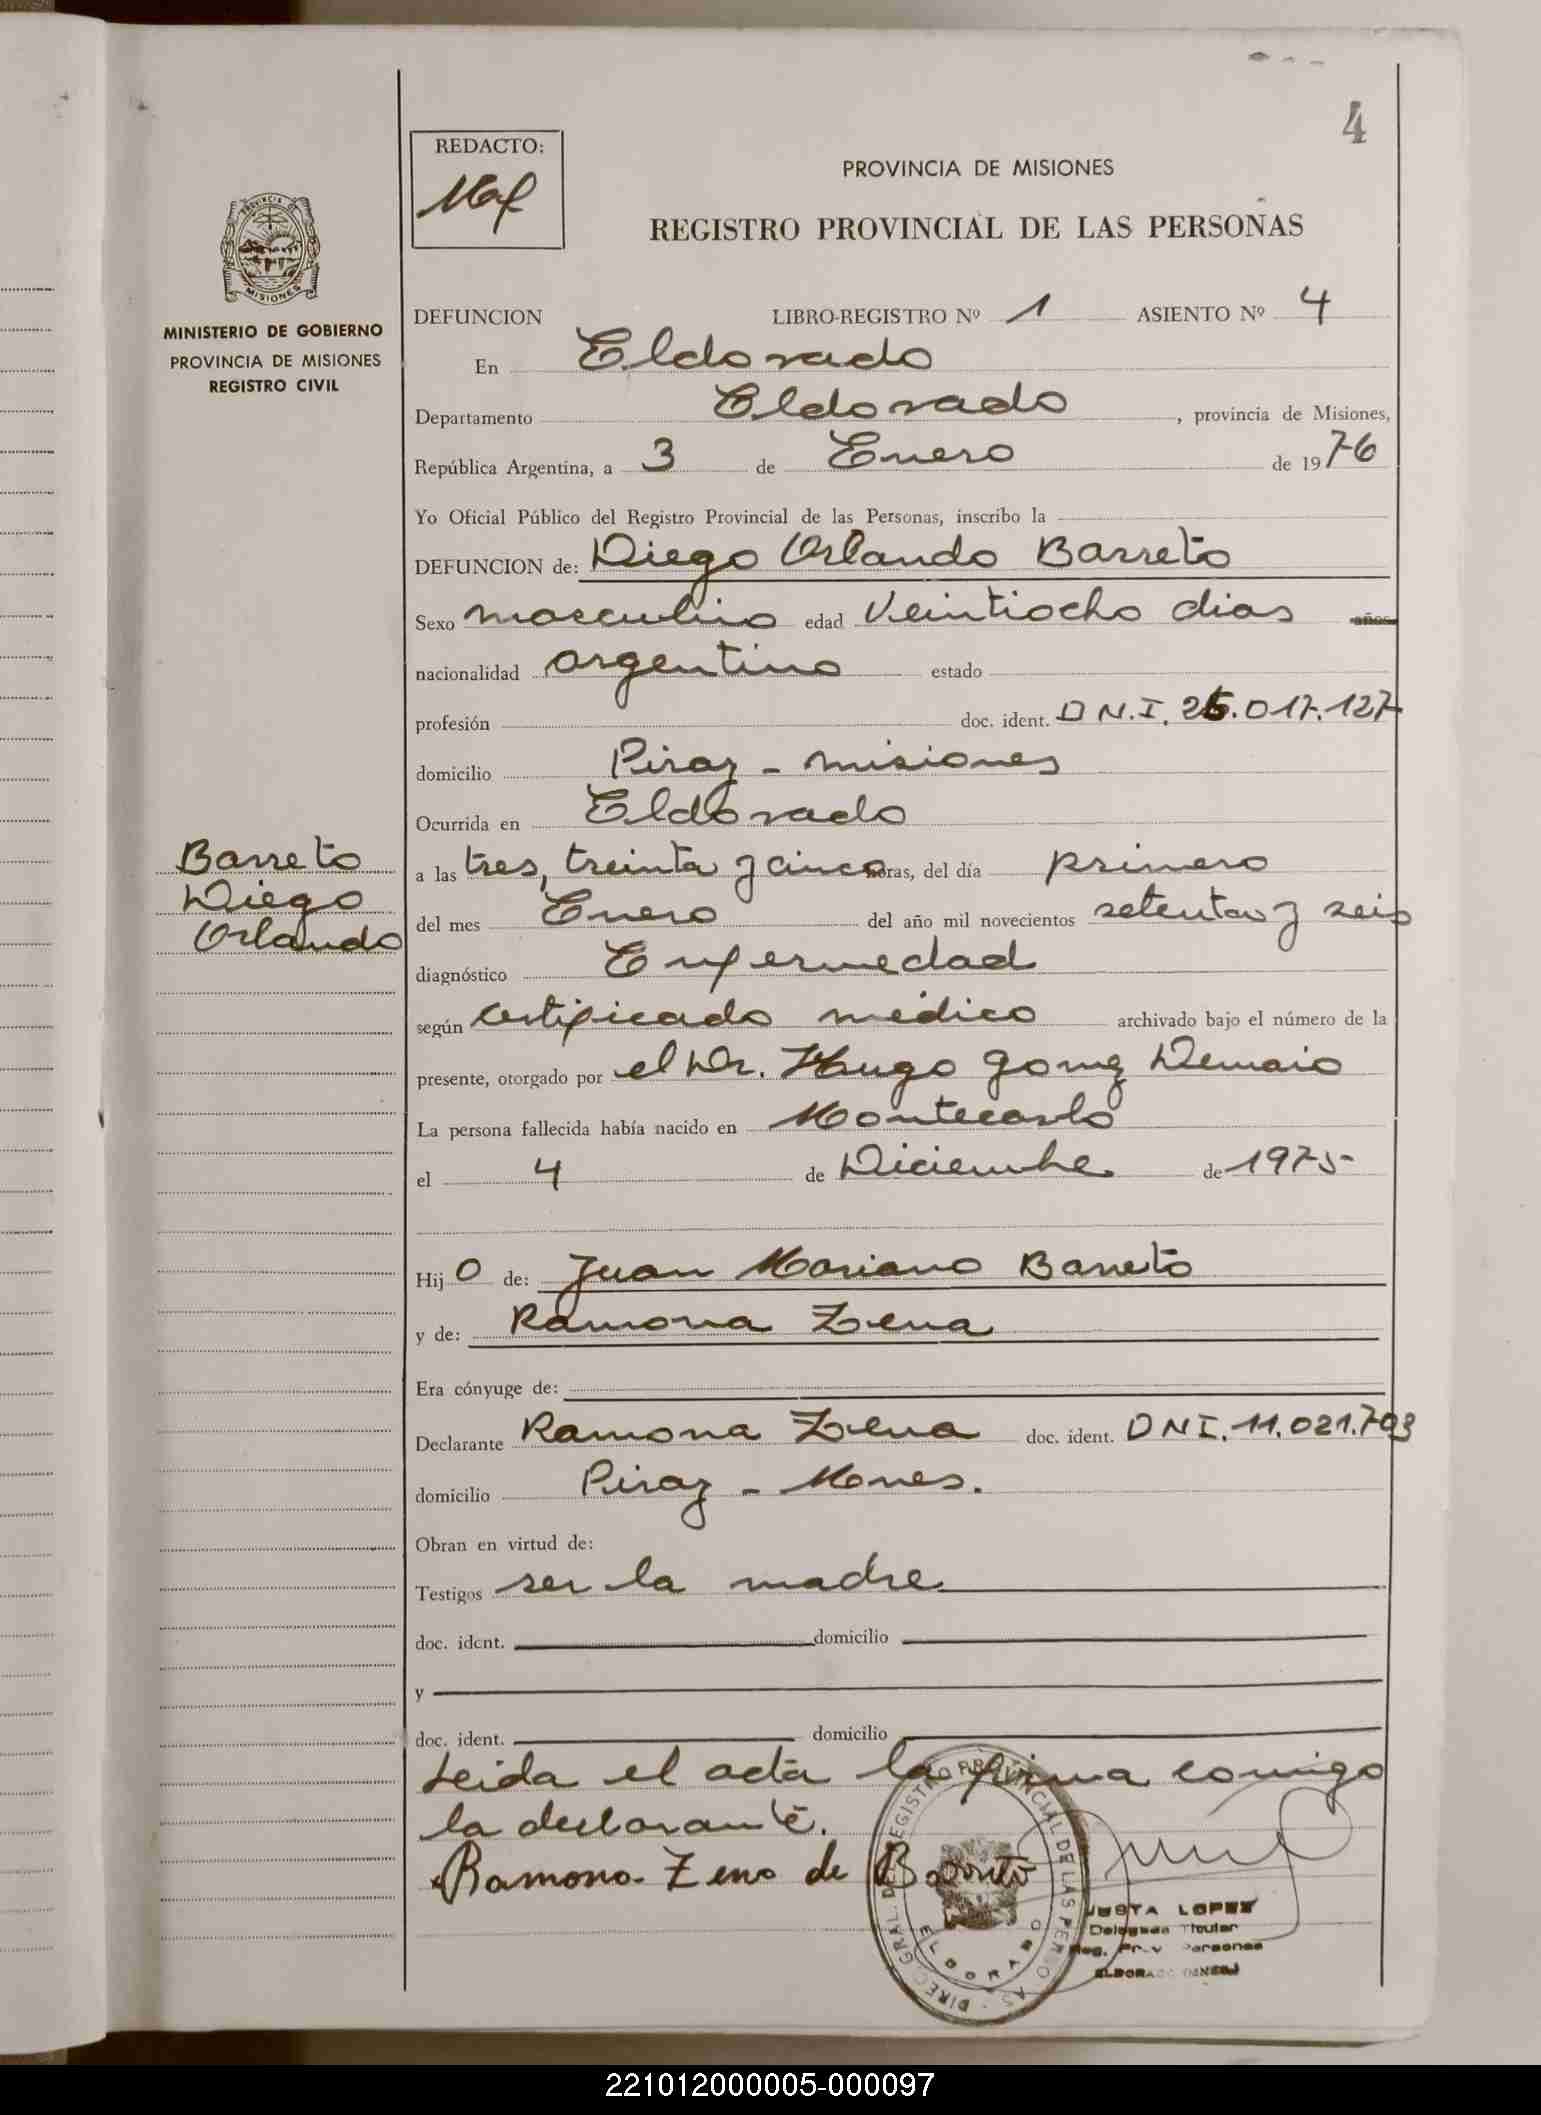 4
REDACTO:
PROVINCIA DE MISIONES
REGISTRO PROVINCIAL DE LAS PERSONAS
MISIONES
MINISTERIO DE GOBIERNO
PROVINCIA DE MISIONES
REGISTRO CIVIL
DEFUNCION LIBRO-REGISTRO Nº 1 ASIENTO Nº 4
En Eldorado
Departamento Eldorado, provincia de Misiones,
República Argentina, a 3 de Enero de 1976
Yo Oficial Público del Registro Provincial de las Personas, inscribo la
DEFUNCION de: Diego Orlando Barreto
Sexo masculino edad Veintiocho dias años
nacionalidad argentino estado
profesión doc. ident. D N.I. 25.017.127
domicilio Piray - misiones
Ocurrida en Eldorado
Barreto
Diego
Orlando
a las tres, treinta y cinco horas, del día primero
del mes Enero del año mil novecientos setenta y seis
diagnóstico Enfermedad
según certificado médico archivado bajo el número de la
presente, otorgado por el Dr. Hugo Gomez Demaio
La persona fallecida había nacido en Montecarlo
el 4 de Diciembre de 1975
Hijo de: Juan Mariano Barreto
y de: Ramona Zena
Era cónyuge de:
Declarante Ramona Zena doc. ident. D N I. 11.021.703
domicilio Piray - Mones.
Obran en virtud de:
Testigos ser la madre
doc. ident. domicilio
y
doc. ident. domicilio
Leida el acta la firma comigo
la declarante.
Ramona Zena de Barreto
DIREC. GRAL. DE REGISTRO PROVINCIAL DE LAS PERSONAS
ELDORADO
JUSTA LOPEZ
Delegada Titular
Reg. Prov Personas
ELDORADO
221012000005-000097